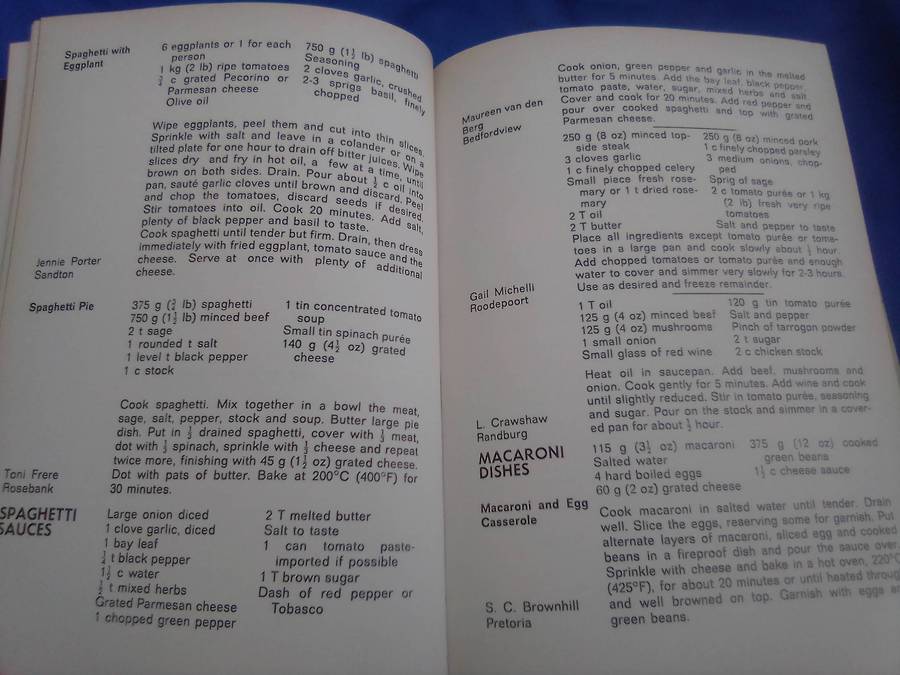 Spaghetti with
Eggplant
6 eggplants or 1 for each
person
1 kg (2 lb) ripe tomatoes
¾ c grated Pecorino or
Parmesan cheese
Olive oil
750 g (1½ lb) spaghetti
Seasoning
2 cloves garlic, crushed
2-3 sprigs basil, finely
chopped
Wipe eggplants, peel them and cut into thin slices.
Sprinkle with salt and leave in a colander or on a
tilted plate for one hour to drain off bitter juices. Wipe
slices dry and fry in hot oil, a few at a time, until
brown on both sides. Drain. Pour about ½ c oil into
pan, sauté garlic cloves until brown and discard. Peel
and chop the tomatoes, discard seeds if desired.
Stir tomatoes into oil. Cook 20 minutes. Add salt,
plenty of black pepper and basil to taste.
Cook spaghetti until tender but firm. Drain, then dress
immediately with fried eggplant, tomato sauce and the
cheese. Serve at once with plenty of additional
cheese.
Jennie Porter
Sandton
Spaghetti Pie
375 g (¾ lb) spaghetti
750 g (1½ lb) minced beef
2 t sage
1 rounded t salt
1 level t black pepper
1 c stock
1 tin concentrated tomato
soup
Small tin spinach purée
140 g (4½ oz) grated
cheese
Cook spaghetti. Mix together in a bowl the meat,
sage, salt, pepper, stock and soup. Butter large pie
dish. Put in ⅓ drained spaghetti, cover with ⅓ meat,
dot with ⅓ spinach, sprinkle with ⅓ cheese and repeat
twice more, finishing with 45 g (1½ oz) grated cheese.
Dot with pats of butter. Bake at 200°C (400°F) for
30 minutes.
Toni Frere
Rosebank
SPAGHETTI
SAUCES
Large onion diced
1 clove garlic, diced
1 bay leaf
¼ t black pepper
1½ c water
½ t mixed herbs
Grated Parmesan cheese
1 chopped green pepper
2 T melted butter
Salt to taste
1 can tomato paste-
imported if possible
1 T brown sugar
Dash of red pepper or
Tobasco
Cook onion, green pepper and garlic in the melted
butter for 5 minutes. Add the bay leaf, black pepper,
tomato paste, water, sugar, mixed herbs and salt.
Cover and cook for 20 minutes. Add red pepper and
pour over cooked spaghetti and top with grated
Parmesan cheese.
Maureen van den
Berg
Bedfordview
250 g (8 oz) minced top-
side steak
3 cloves garlic
1 c finely chopped celery
Small piece fresh rose-
mary or 1 t dried rose-
mary
2 T oil
2 T butter
250 g (8 oz) minced pork
1 c finely chopped parsley
3 medium onions, chop-
ped
Sprig of sage
2 c tomato purée or 1 kg
(2 lb) fresh very ripe
tomatoes
Salt and pepper to taste
Place all ingredients except tomato purée or toma-
toes in a large pan and cook slowly about ½ hour.
Add chopped tomatoes or tomato purée and enough
water to cover and simmer very slowly for 2-3 hours.
Use as desired and freeze remainder.
Gail Michelli
Roodepoort
1 T oil
125 g (4 oz) minced beef
125 g (4 oz) mushrooms
1 small onion
Small glass of red wine
120 g tin tomato purée
Salt and pepper
Pinch of tarrogon powder
2 t sugar
2 c chicken stock
Heat oil in saucepan. Add beef, mushrooms and
onion. Cook gently for 5 minutes. Add wine and cook
until slightly reduced. Stir in tomato purée, seasoning
and sugar. Pour on the stock and simmer in a cover-
ed pan for about ½ hour.
L. Crawshaw
Randburg
MACARONI
DISHES
115 g (3½ oz) macaroni
Salted water
4 hard boiled eggs
60 g (2 oz) grated cheese
375 g (12 oz) cooked
green beans
1½ c cheese sauce
Macaroni and Egg
Casserole
Cook macaroni in salted water until tender. Drain
well. Slice the eggs, reserving some for garnish. Put
alternate layers of macaroni, sliced egg and cooked
beans in a fireproof dish and pour the sauce over.
Sprinkle with cheese and bake in a hot oven, 220°C
(425°F), for about 20 minutes or until heated through
and well browned on top. Garnish with eggs and
green beans.
S. C. Brownhill
Pretoria